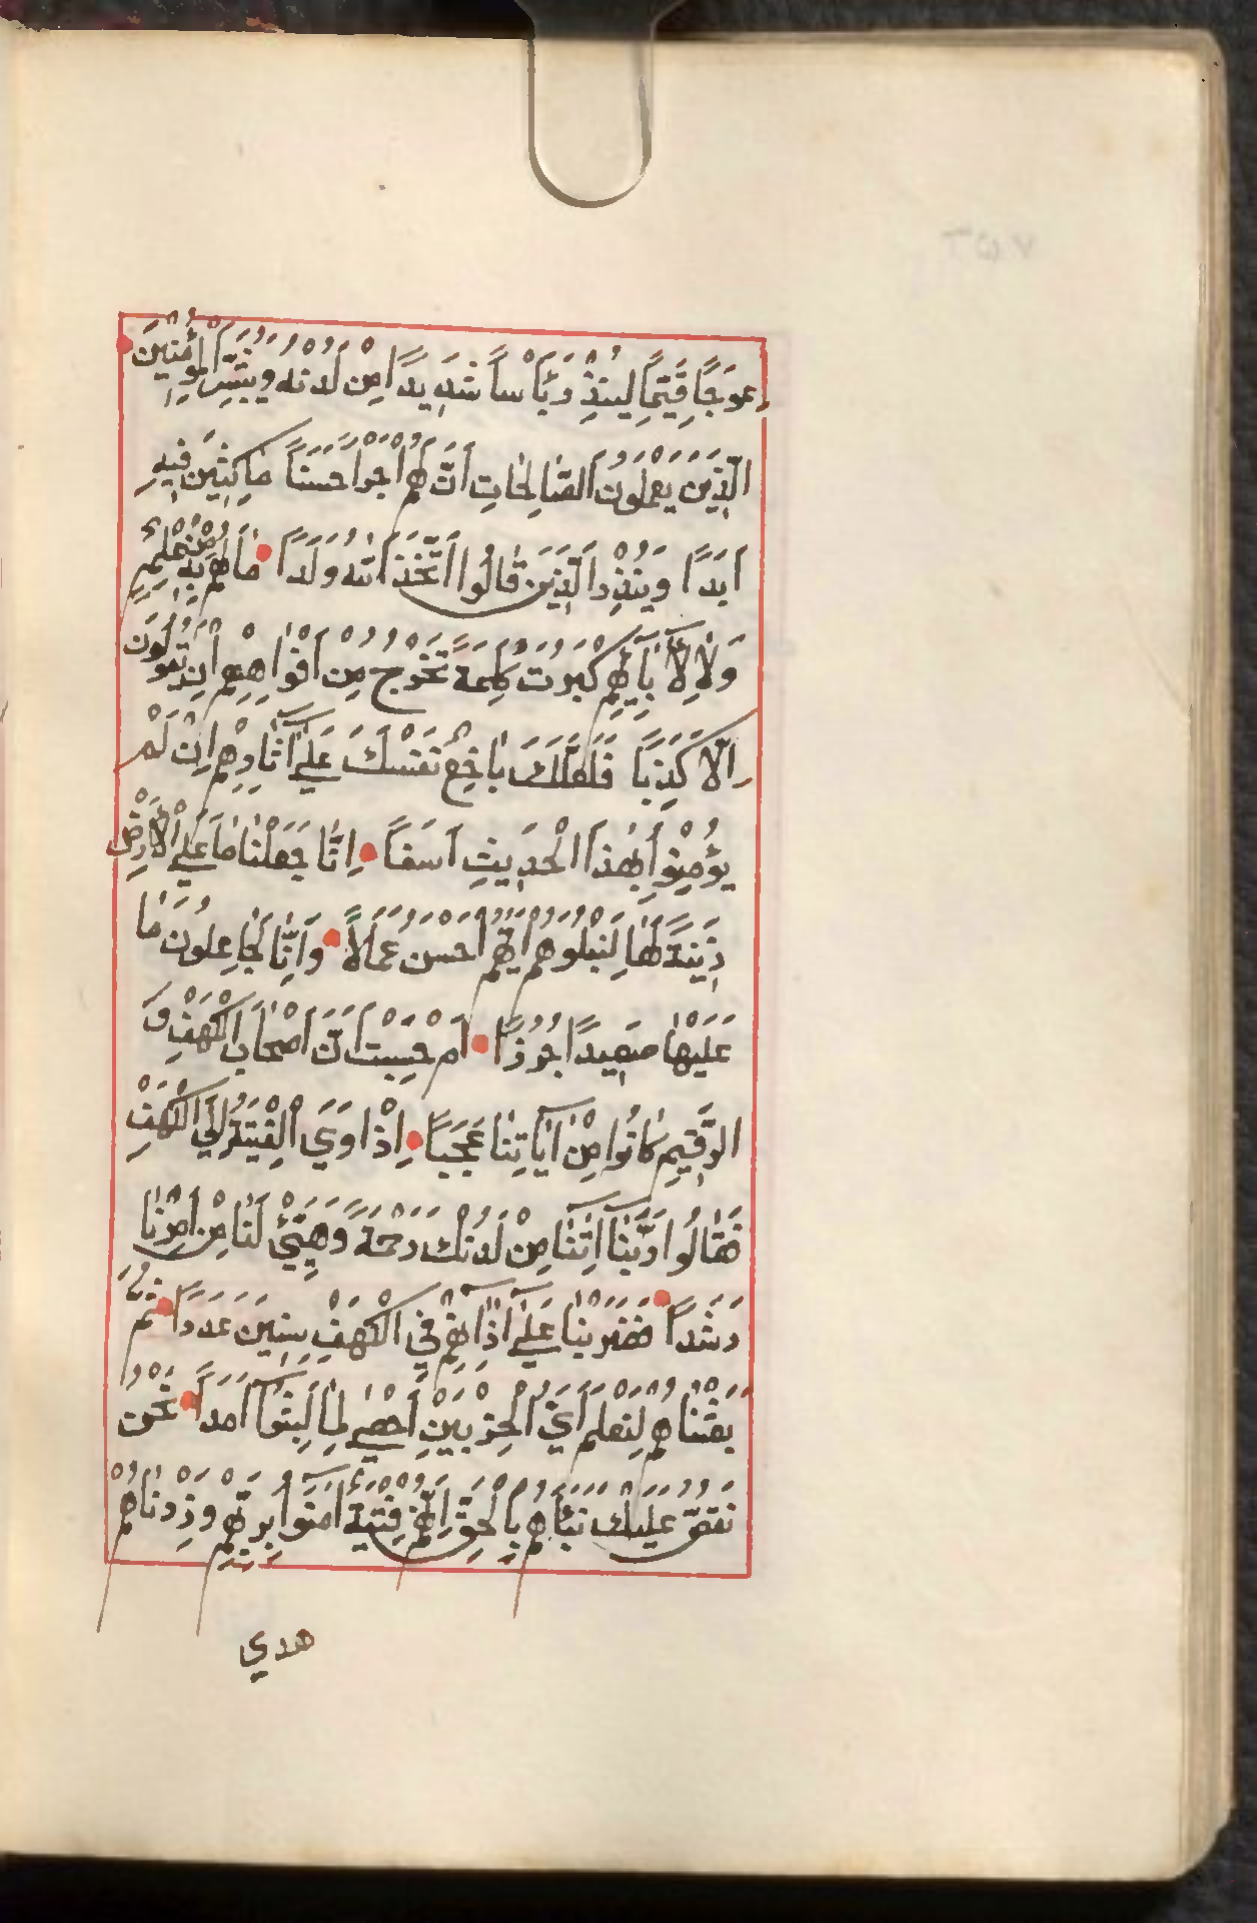 عِوَجًا قَيِّمًا لِيُنْذِرَ بَأْسًا شَدِيدًا مِنْ لَدُنْهُ وَيُبَشِّرَ الْمُؤْمِنِينَ
الَّذِينَ يَعْمَلُونَ الصَّالِحَاتِ أَنَّ لَهُمْ أَجْرًا حَسَنًا مَاكِثِينَ فِيهِ
أَبَدًا وَيُنْذِرَ الَّذِينَ قَالُوا اتَّخَذَ اللَّهُ وَلَدًا مَا لَهُمْ بِهِ مِنْ عِلْمٍ
وَلَا لِآبَائِهِمْ كَبُرَتْ كَلِمَةً تَخْرُجُ مِنْ أَفْوَاهِهِمْ إِنْ يَقُولُونَ
إِلَّا كَذِبًا فَلَعَلَّكَ بَاخِعٌ نَفْسَكَ عَلَى آثَارِهِمْ إِنْ لَمْ
يُؤْمِنُوا بِهَذَا الْحَدِيثِ أَسَفًا إِنَّا جَعَلْنَا مَا عَلَى الْأَرْضِ
زِينَةً لَهَا لِنَبْلُوَهُمْ أَيُّهُمْ أَحْسَنُ عَمَلًا وَإِنَّا لَجَاعِلُونَ مَا
عَلَيْهَا صَعِيدًا جُرُزًا أَمْ حَسِبْتَ أَنَّ أَصْحَابَ الْكَهْفِ وَ
الرَّقِيمِ كَانُوا مِنْ آيَاتِنَا عَجَبًا إِذْ أَوَى الْفِتْيَةُ إِلَى الْكَهْفِ
فَقَالُوا رَبَّنَا آتِنَا مِنْ لَدُنْكَ رَحْمَةً وَهَيِّئْ لَنَا مِنْ أَمْرِنَا
رَشَدًا فَضَرَبْنَا عَلَى آذَانِهِمْ فِي الْكَهْفِ سِنِينَ عَدَدًا ثُمَّ
بَعَثْنَاهُمْ لِنَعْلَمَ أَيُّ الْحِزْبَيْنِ أَحْصَى لِمَا لَبِثُوا أَمَدًا نَحْنُ
نَقُصُّ عَلَيْكَ نَبَأَهُمْ بِالْحَقِّ إِنَّهُمْ فِتْيَةٌ آمَنُوا بِرَبِّهِمْ وَزِدْنَاهُمْ
هدي